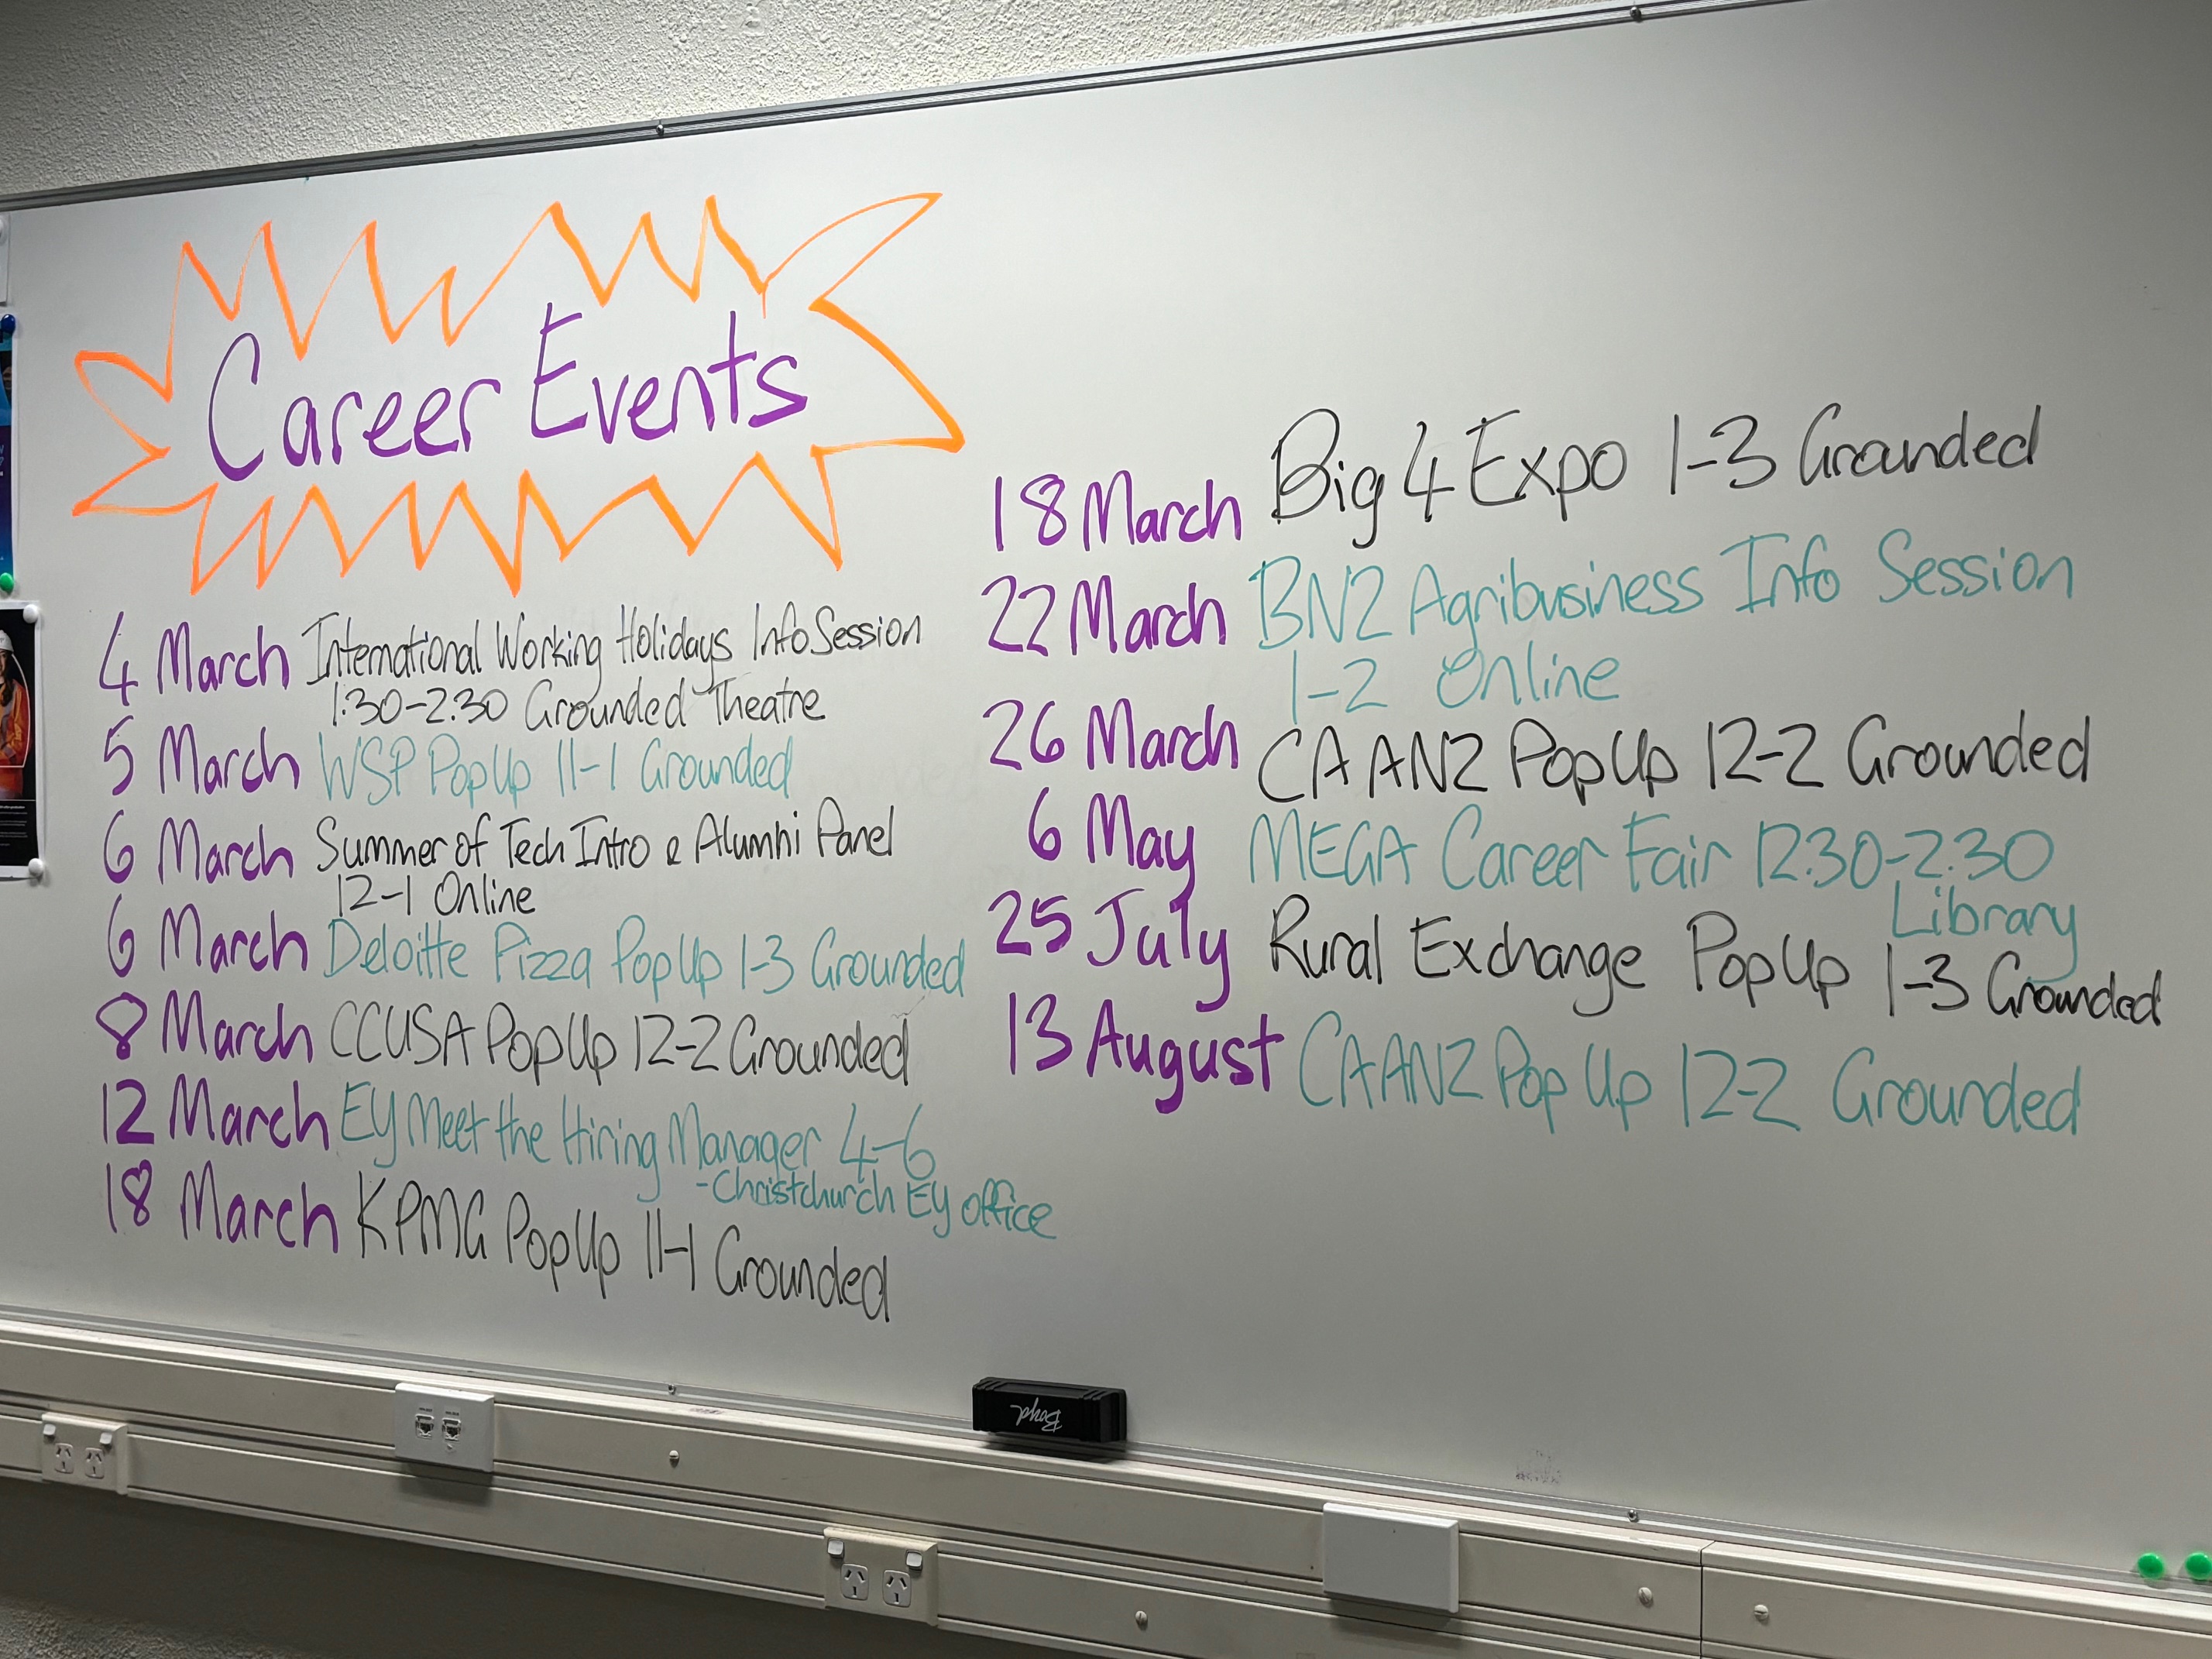 Career Events
4 March International Working Holidays Info Session
1:30-2.30 Grounded Theatre
5 March WSP PopUp 11-1 Grounded
6 March Summer of Tech Intro & Alumni Panel
12-1 Online
6 March Deloitte Pizza PopUp 1-3 Grounded
8 March CCUSA PopUp 12-2 Grounded
12 March EY Meet the Hiring Manager 4-6
-Christchurch EY office
18 March KPMG PopUp 11-1 Grounded
18 March Big 4 Expo 1-3 Grounded
22 March BNZ Agribusiness Info Session
1-2 Online
26 March CA ANZ PopUp 12-2 Grounded
6 May MEGA Career Fair 12.30-2.30
Library
25 July Rural Exchange PopUp 1-3 Grounded
13 August CA ANZ Pop Up 12-2 Grounded
Boyd